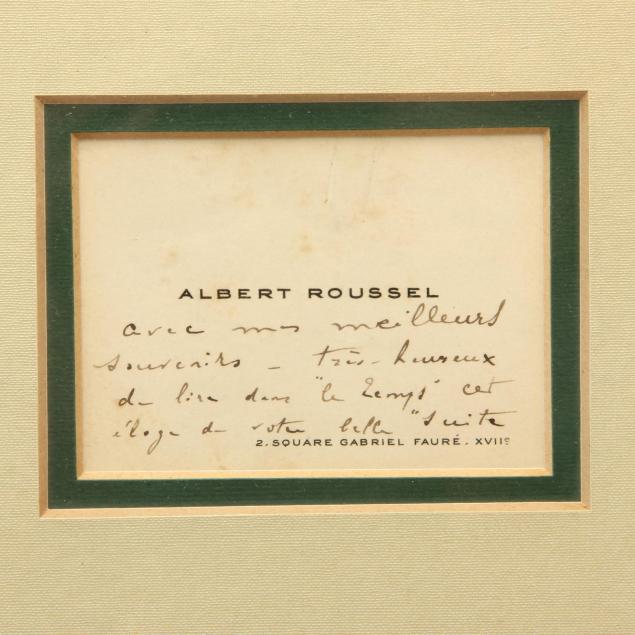 ALBERT ROUSSEL
avec mes meilleurs
souvenirs - très heureux
de lire dans "le Temps" cet
éloge de votre belle "Suite
2. SQUARE GABRIEL FAURÉ. XVIIe